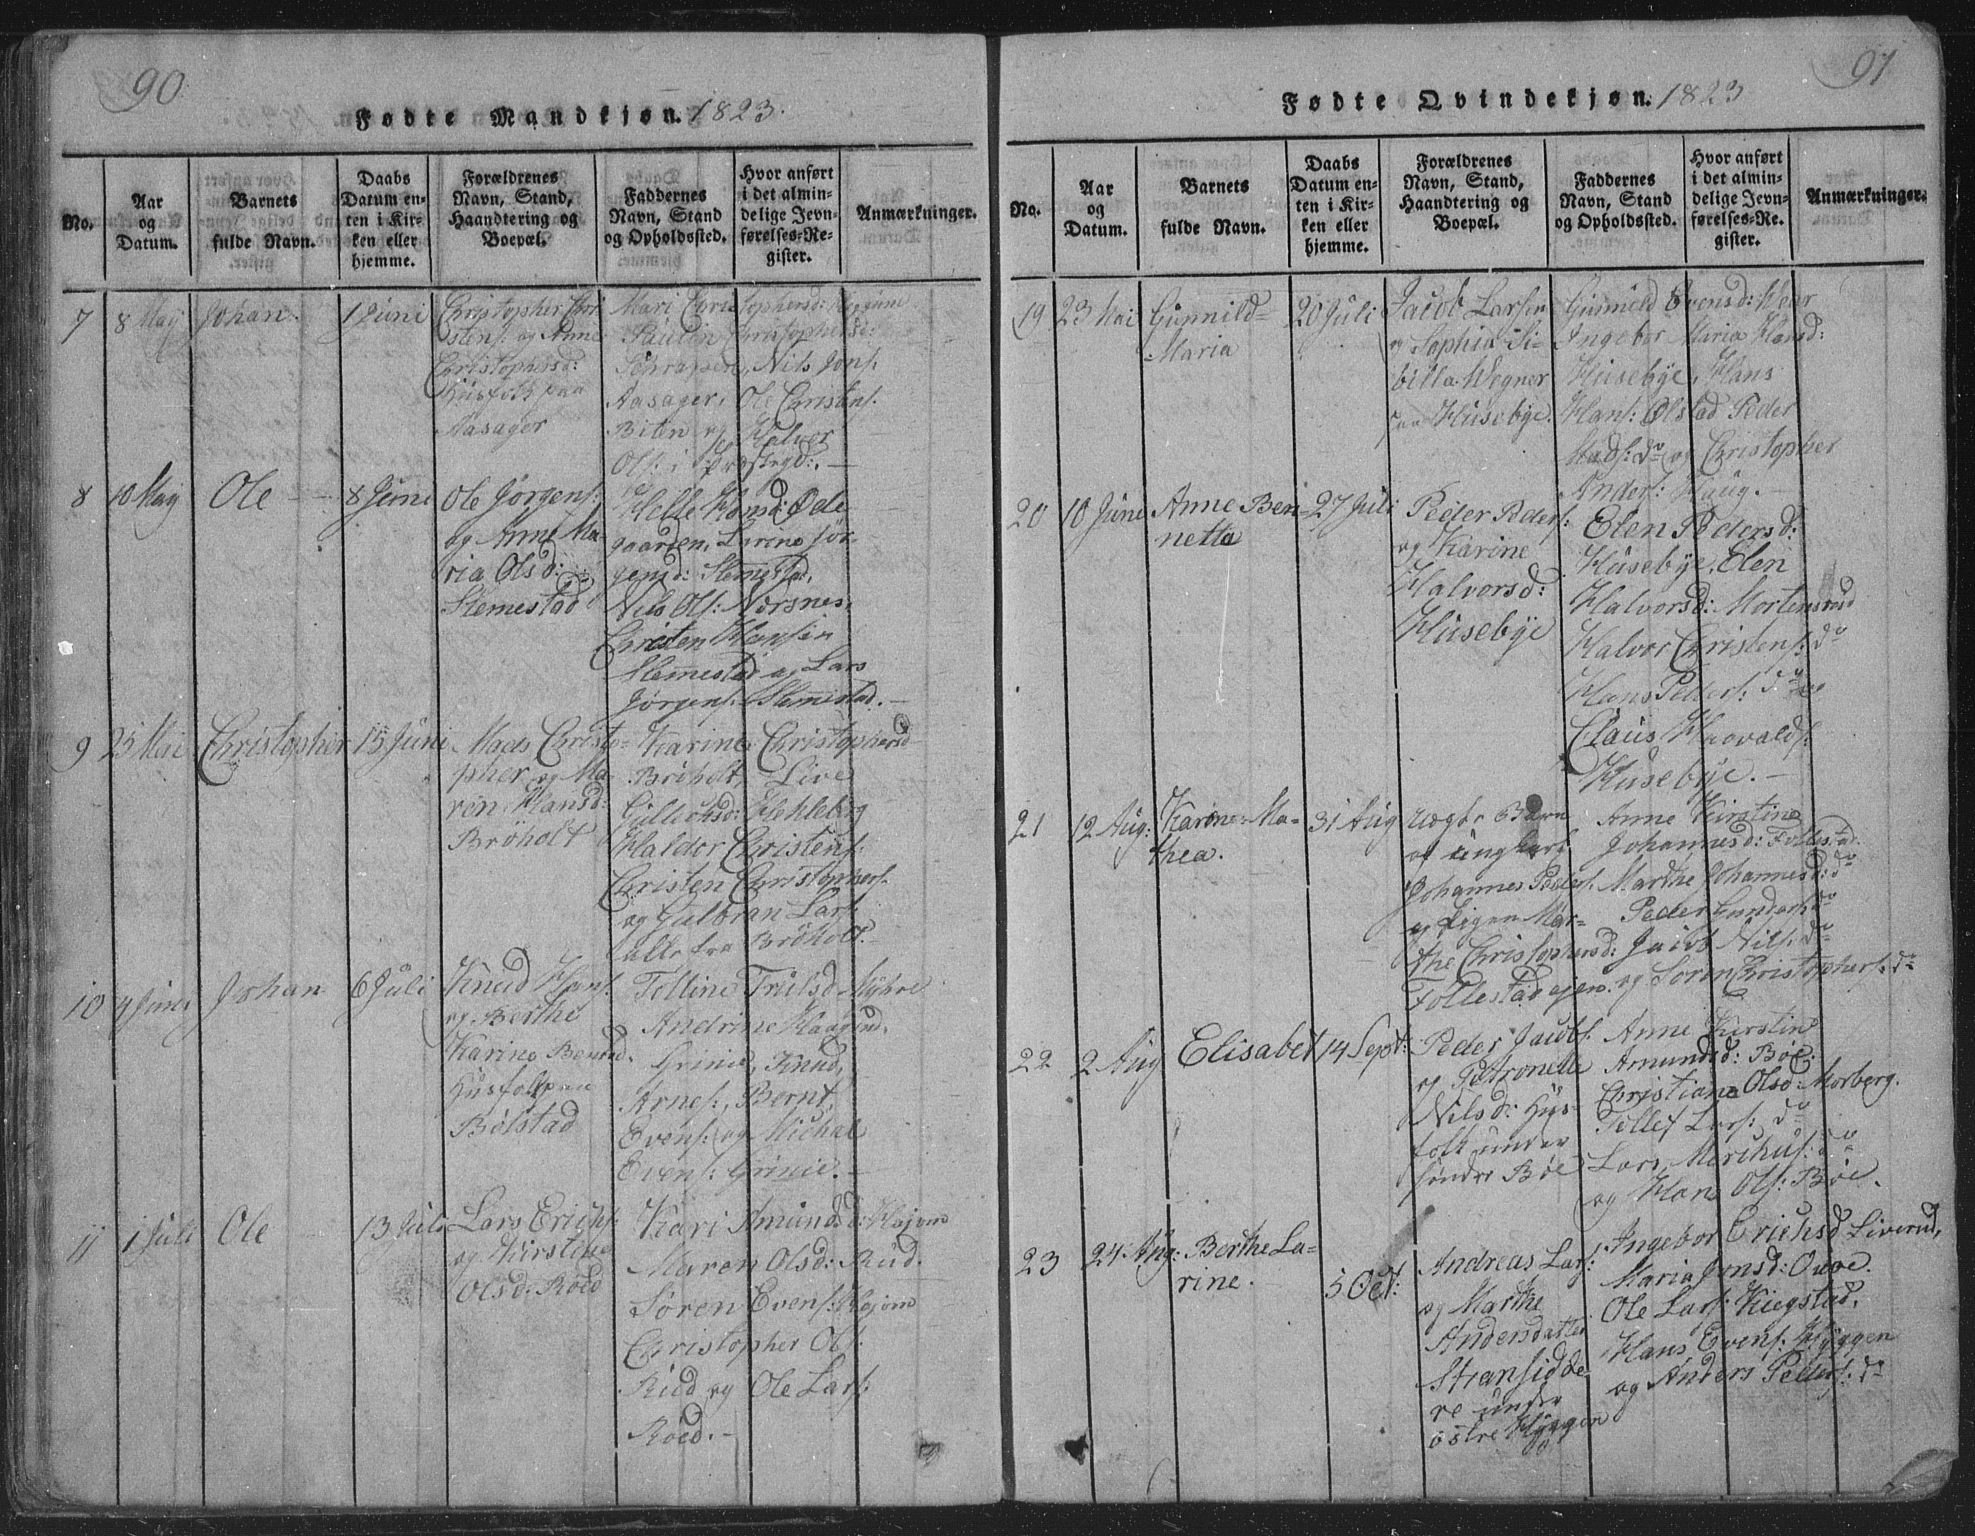 90
Fødte Mandkjøn. 1823.
No.
Aar
og
Datum.
Barnets
fulde Navn.
Daabs
Datum en-
ten i Kir-
ken eller
hjemme.
Forældrenes
Navn, Stand,
Haandtering og
Boepæl.
Faddernes
Navn, Stand
og Opholdssted.
Hvor anført
i det almin-
delige Jevn-
førelses-Re-
gister.
Anmærkninger.
7
8 Maj
Johan
1 Juni
Christopher Chri-
stens: og Anne
Christophersd:
Husfolk paa
Aasager
Mari Christophersd: Kyggum
Paulin Christophersd:
Schrapen, Nils Jons:
Aasager, Ole Christens:
Biten og Halvor
Ols: i Præstegd:. —
8
10 Maj
Ole
8 Juni
Ole Jørgens:
og Anne Ma-
ria Olsd:
Slemestad
Helle Hansd: Øde-
gaarden, Larine Jør-
gensd: Slemestad,
Nils Ols: Nærsnes,
Christen Hansen
Slemestad og Lars
Jørgens: Slemestad. —
9
25 Mai
Christopher
15 Juni
Mads Christo-
pher og Ma-
ren Hansd:
Brøholt
Karine Christophersd
Brøholt, Live
Gulleichsd: Hekleberg
Haldor Christens:
Christen Christophers:
og Gulbran Lars:
alle fra Brøholt. —
10
9 Juni
Johan
6 Juli
Knud Hans:
og Berthe
Karine Berntsd:
Husfolk paa
Bølstad
Tolline Trulsd Møbve
Andrine Haagensd:
Grinie, Knud
Arnes:, Bernt
Evens: og Michal
Evens: Grinie. —
11
1 Juli
Ole
13 Juli
Lars Erichs:
og Kirstine
Olsd: Røed
Kari Amundsd: Højom
Maren Olsd: Rud.
Søren Evens: Højom
Christopher Ols:
Rud og Ole Lars:
Røed. —
91
Fødte Qvindekjøn. 1823
No.
Aar
og
Datum.
Barnets
fulde Navn.
Daabs
Datum en-
ten i Kir-
ken eller
hjemme.
Forældrenes
Navn, Stand,
Haandtering og
Boepæl.
Faddernes
Navn, Stand
og Opholdssted.
Hvor anført
i det almin-
delige Jevn-
førelses-Re-
gister.
Anmærkninger.
19
23 Mai
Gunnild
Maria
20 Juli
Jacob Larsen
og Sophia Si-
billa Wegner
paa Husebye.
Gunnild Evensd:
Ingebor Maria Hansd:
Husebye, Hans
Hans: Ølstad Peder
Mads: do og Christopher
Anders: Haug. —
20
10 Juni
Anne Ben-
netta
27 Juli
Peder Peders:
og Karine
Halvorsd:
Husebye
Elen Pedersd:
Husebye, Elen
Halvorsd: Mortensrud
Halvor Christens: do
Hans Peders: do og
Claus Haavalds:
Husebye. —
21
12 Aug:
Karine Ma-
thea.
31 Aug
uægte Barn
af ungkarl
Johannes Peders:
og Pigen Mar-
the Christophersd:
Follestad ejen.
Anne Kirstine
Johannesd: Follestad.
Marthe Johannesd: do
Peder Gunders: do
Jacob Nils: do
og Søren Christophers: do
22
2 Aug
Elisabet
14 Sept:
Peder Jacobs:
og Petronelle
Nilsd: Hus-
folk under
søndre Bøe
Anne Kirstin
Amundsd: Bøe.
Christiane Olsd: Morberg.
Tollef Lars: do
Lars Marchus: do
og Hans Ols: Bøe.
23
24 Aug:
Berthe La-
rine.
5 Oct:
Andreas Lars:
og Marthe
Andersdatter
Stransidde-
re under
østre Hyggen
Ingebor Erichsd Liverud,
Maria Jonsd: Ouve.
Ole Lars: Kiegstad.
Hans Evens: Hyggen
og Anders Peders: do